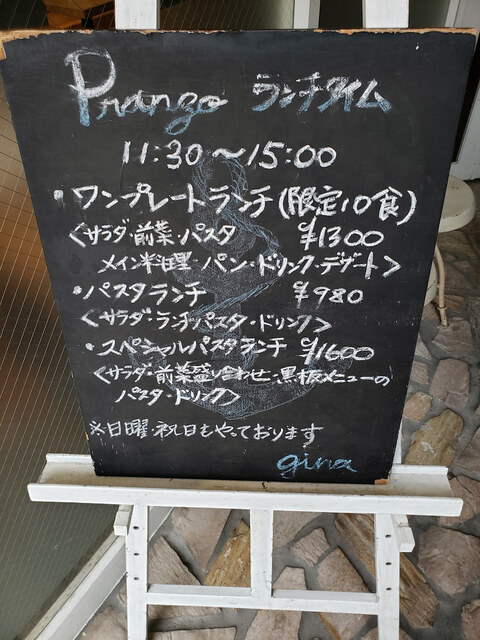 Pranzo ランチタイム
11:30〜15:00
・ワンプレートランチ(限定10食)
<サラダ・前菜・パスタ ¥1300
メイン料理・パン・ドリンク・デザート>
・パスタランチ ¥980
<サラダ・ランチパスタ・ドリンク>
・スペシャルパスタランチ ¥1600
<サラダ・前菜盛り合わせ・黒板メニューの
パスタ・ドリンク>
※日曜・祝日もやっております
gina